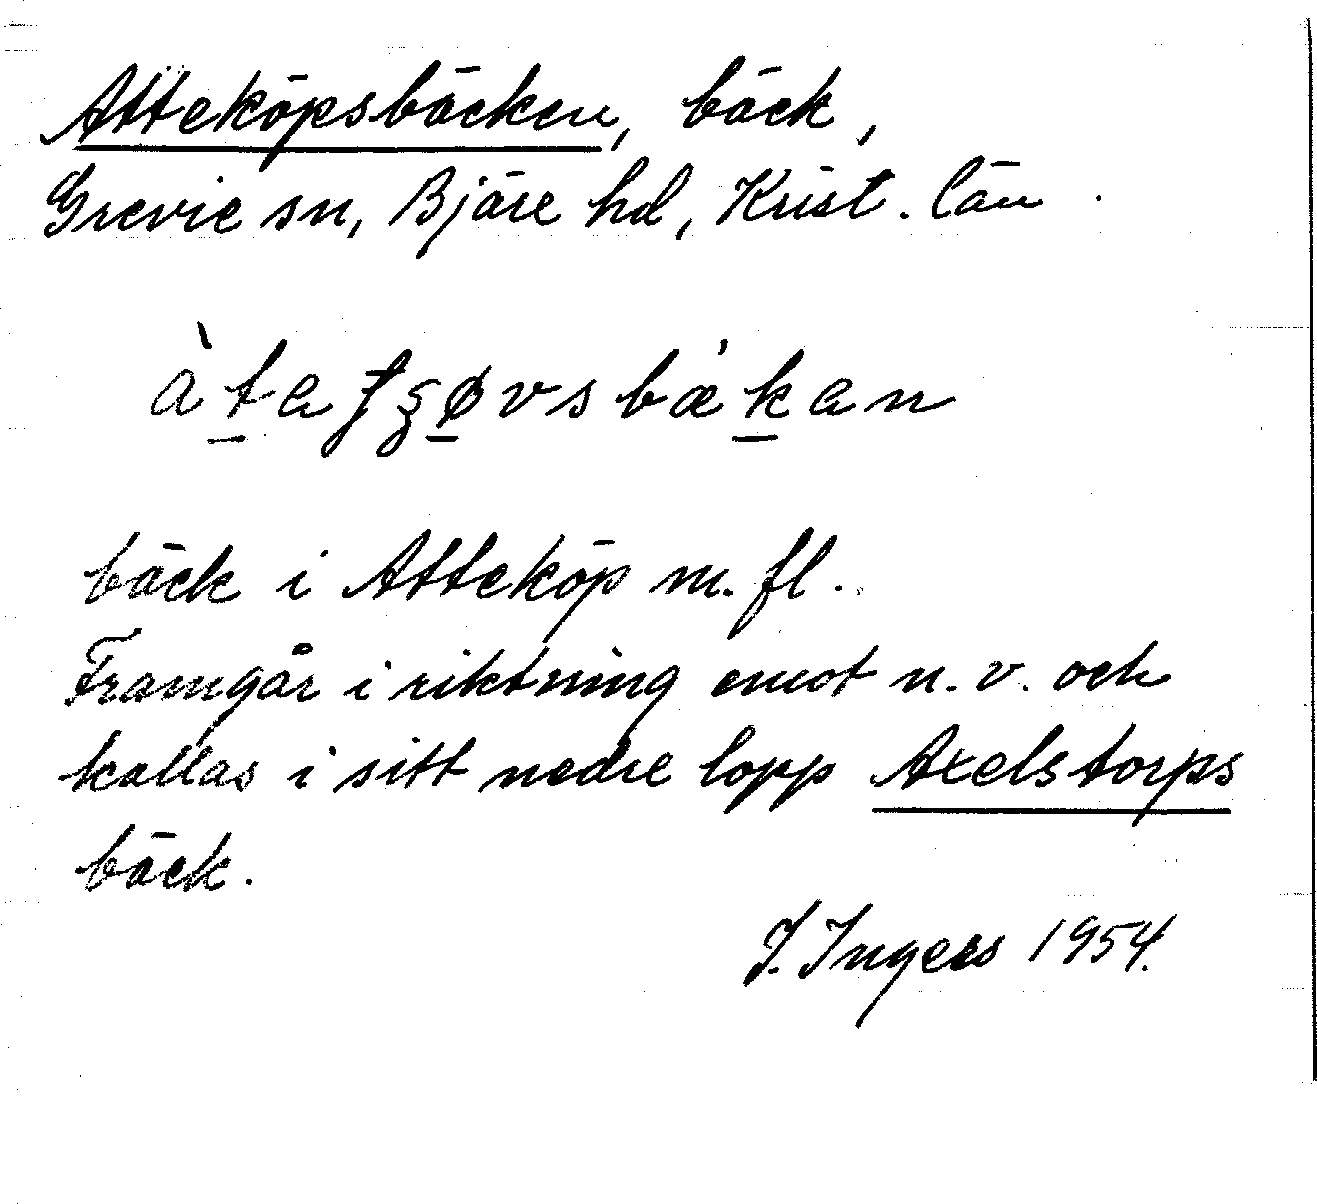 Atteköpsbäcken, bäck,
Grevie sn, Bjäre hd, Krist. län.
bäck i Atteköp m. fl.
Framgår i riktning emot n. v. och
kallas i sitt nedre lopp Axelstorps
bäck.
I. Ingers 1954.